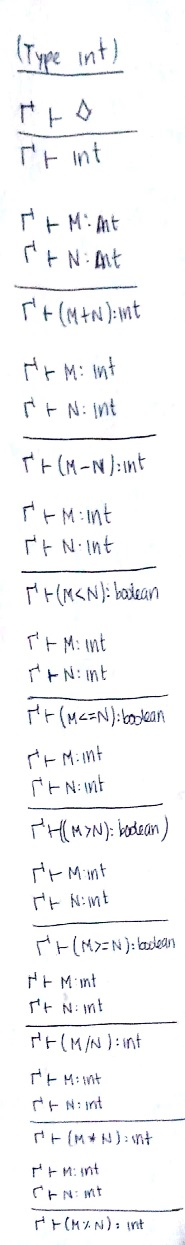 (Type int)
Γ ⊢ ◊
Γ ⊢ int
Γ ⊢ M: int
Γ ⊢ N: int
Γ ⊢ (M+N): int
Γ ⊢ M: int
Γ ⊢ N: int
Γ ⊢ (M-N): int
Γ ⊢ M: int
Γ ⊢ N: int
Γ ⊢ (M<N): boolean
Γ ⊢ M: int
Γ ⊢ N: int
Γ ⊢ (M<=N): boolean
Γ ⊢ M: int
Γ ⊢ N: int
Γ ⊢ ((M>N): boolean)
Γ ⊢ M: int
Γ ⊢ N: int
Γ ⊢ (M>=N): boolean
Γ ⊢ M: int
Γ ⊢ N: int
Γ ⊢ (M/N): int
Γ ⊢ M: int
Γ ⊢ N: int
Γ ⊢ (M*N): int
Γ ⊢ M: int
Γ ⊢ N: int
Γ ⊢ (M%N): int